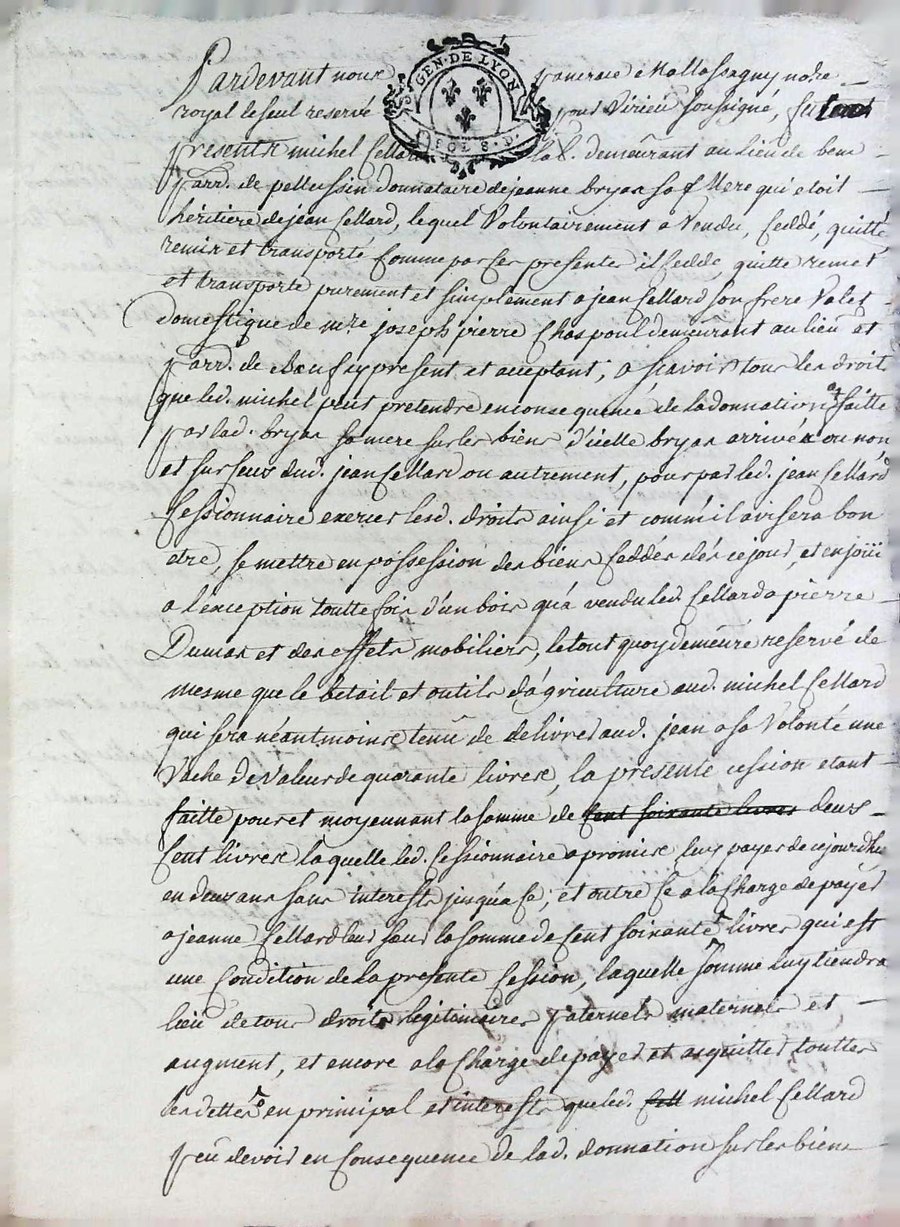 GEN. DE LYON
SOL 8. D.
Pardevant nous pancrace Mollossagny notre
royal le seul reservé pour Virieu soussigné, fut
present michel Cellard demeurant au lieu de
parr. de pellussin donnataire de jeanne bryas sa mere qui etoit
héritiere de jean Cellard, lequel Volontairement a Vendu, Ceddé, quitté,
remis et transporté Comme par ces presentes il Cedde, quitte remet
et transporte purement et simplement a jean Cellard son frere Valet
domestique de mre joseph pierre Chaspoul demeurant au lieu et
parr. de present et acceptant, a sçavoir tous les droit
que led. michel peut pretendre en consequence de la donnation faitte
par lad. bryas sa mere sur les biens d'icelle bryas arrivée ou non
et sur ceux dud. jean Cellard ou autrement, pour par led. jean Cellard
Cessionnaire exercer lesd. droits ainsi et comme il avisera bon
etre, se mettre en possession des biens Ceddés dés ce jour, et en jouir
a l'exception toutte fois d'un bois qu'a vendu led. Cellard a pierre
Dumas et des effets mobiliers, le tout quoy demeure reservé de
mesme que le betail et outils d'agriculture aud. michel Cellard
qui sera néantmoins tenû de delivrer aud. jean a sa Volonté une
Vache de Valeur de quarante livres, la presente cession etant
faitte pour et moyennant la somme de cent soixante livres deux
Cent livres laquelle led. Cessionnaire a promis luy payer de cejourdhuy
en deux ans sans interests jusqu'a ce, et outre ce a la Charge de payer
a jeanne Cellard leur sœur la somme de Cent soixante livres qui est
une Condition de la presente Cession, laquelle somme luy tiendra
lieu de tous droits legitimaires paternels maternels et
augment, et encore a la Charge de payer et acquitter touttes
les dettes en principal et interests que led. Cell michel Cellard
peû devoir en Consequence de lad. donnation sur les biens